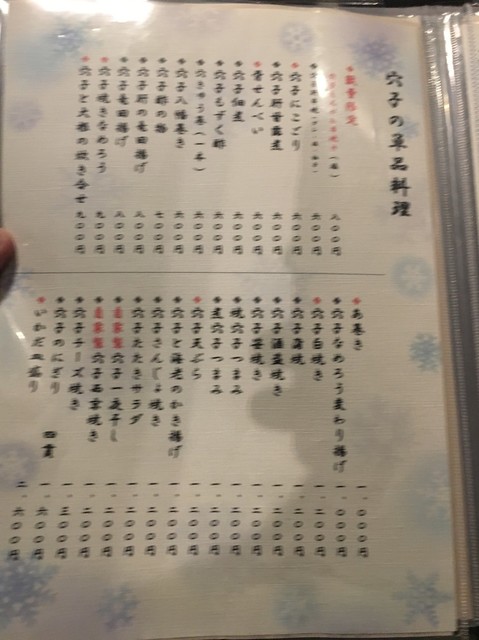 穴子の単品料理
数量限定
八〇〇円
六〇〇円
穴子にこごり 六〇〇円
穴子肝醤油煮 六〇〇円
骨せんべい 六〇〇円
穴子佃煮 六〇〇円
穴子もずく酢 六〇〇円
穴きゅう巻（一本） 六〇〇円
穴子八幡巻き 六〇〇円
七〇〇円
穴子肝の竜田揚げ 八〇〇円
穴子竜田揚げ 八〇〇円
穴子焼きなめろう 九〇〇円
穴子と大根の炊き合せ 九〇〇円
う巻き 一、〇〇〇円
穴子なめろうまわり揚げ 一、〇〇〇円
穴子白焼き 一、二〇〇円
穴子蒲焼 一、二〇〇円
穴子酒盗焼き 一、二〇〇円
穴子笹焼き 一、二〇〇円
焼穴子つまみ 一、二〇〇円
煮穴子つまみ 一、二〇〇円
穴子天ぷら 一、二〇〇円
穴子と海老のかき揚げ 一、二〇〇円
穴子さんしょ焼き 一、二〇〇円
穴子たたきサラダ 一、二〇〇円
自家製穴子一夜干し 一、二〇〇円
自家製穴子西京焼き 一、二〇〇円
穴子チーズ焼き 一、三〇〇円
穴子のにぎり 四貫 一、六〇〇円
いかだ皿盛り 二、六〇〇円